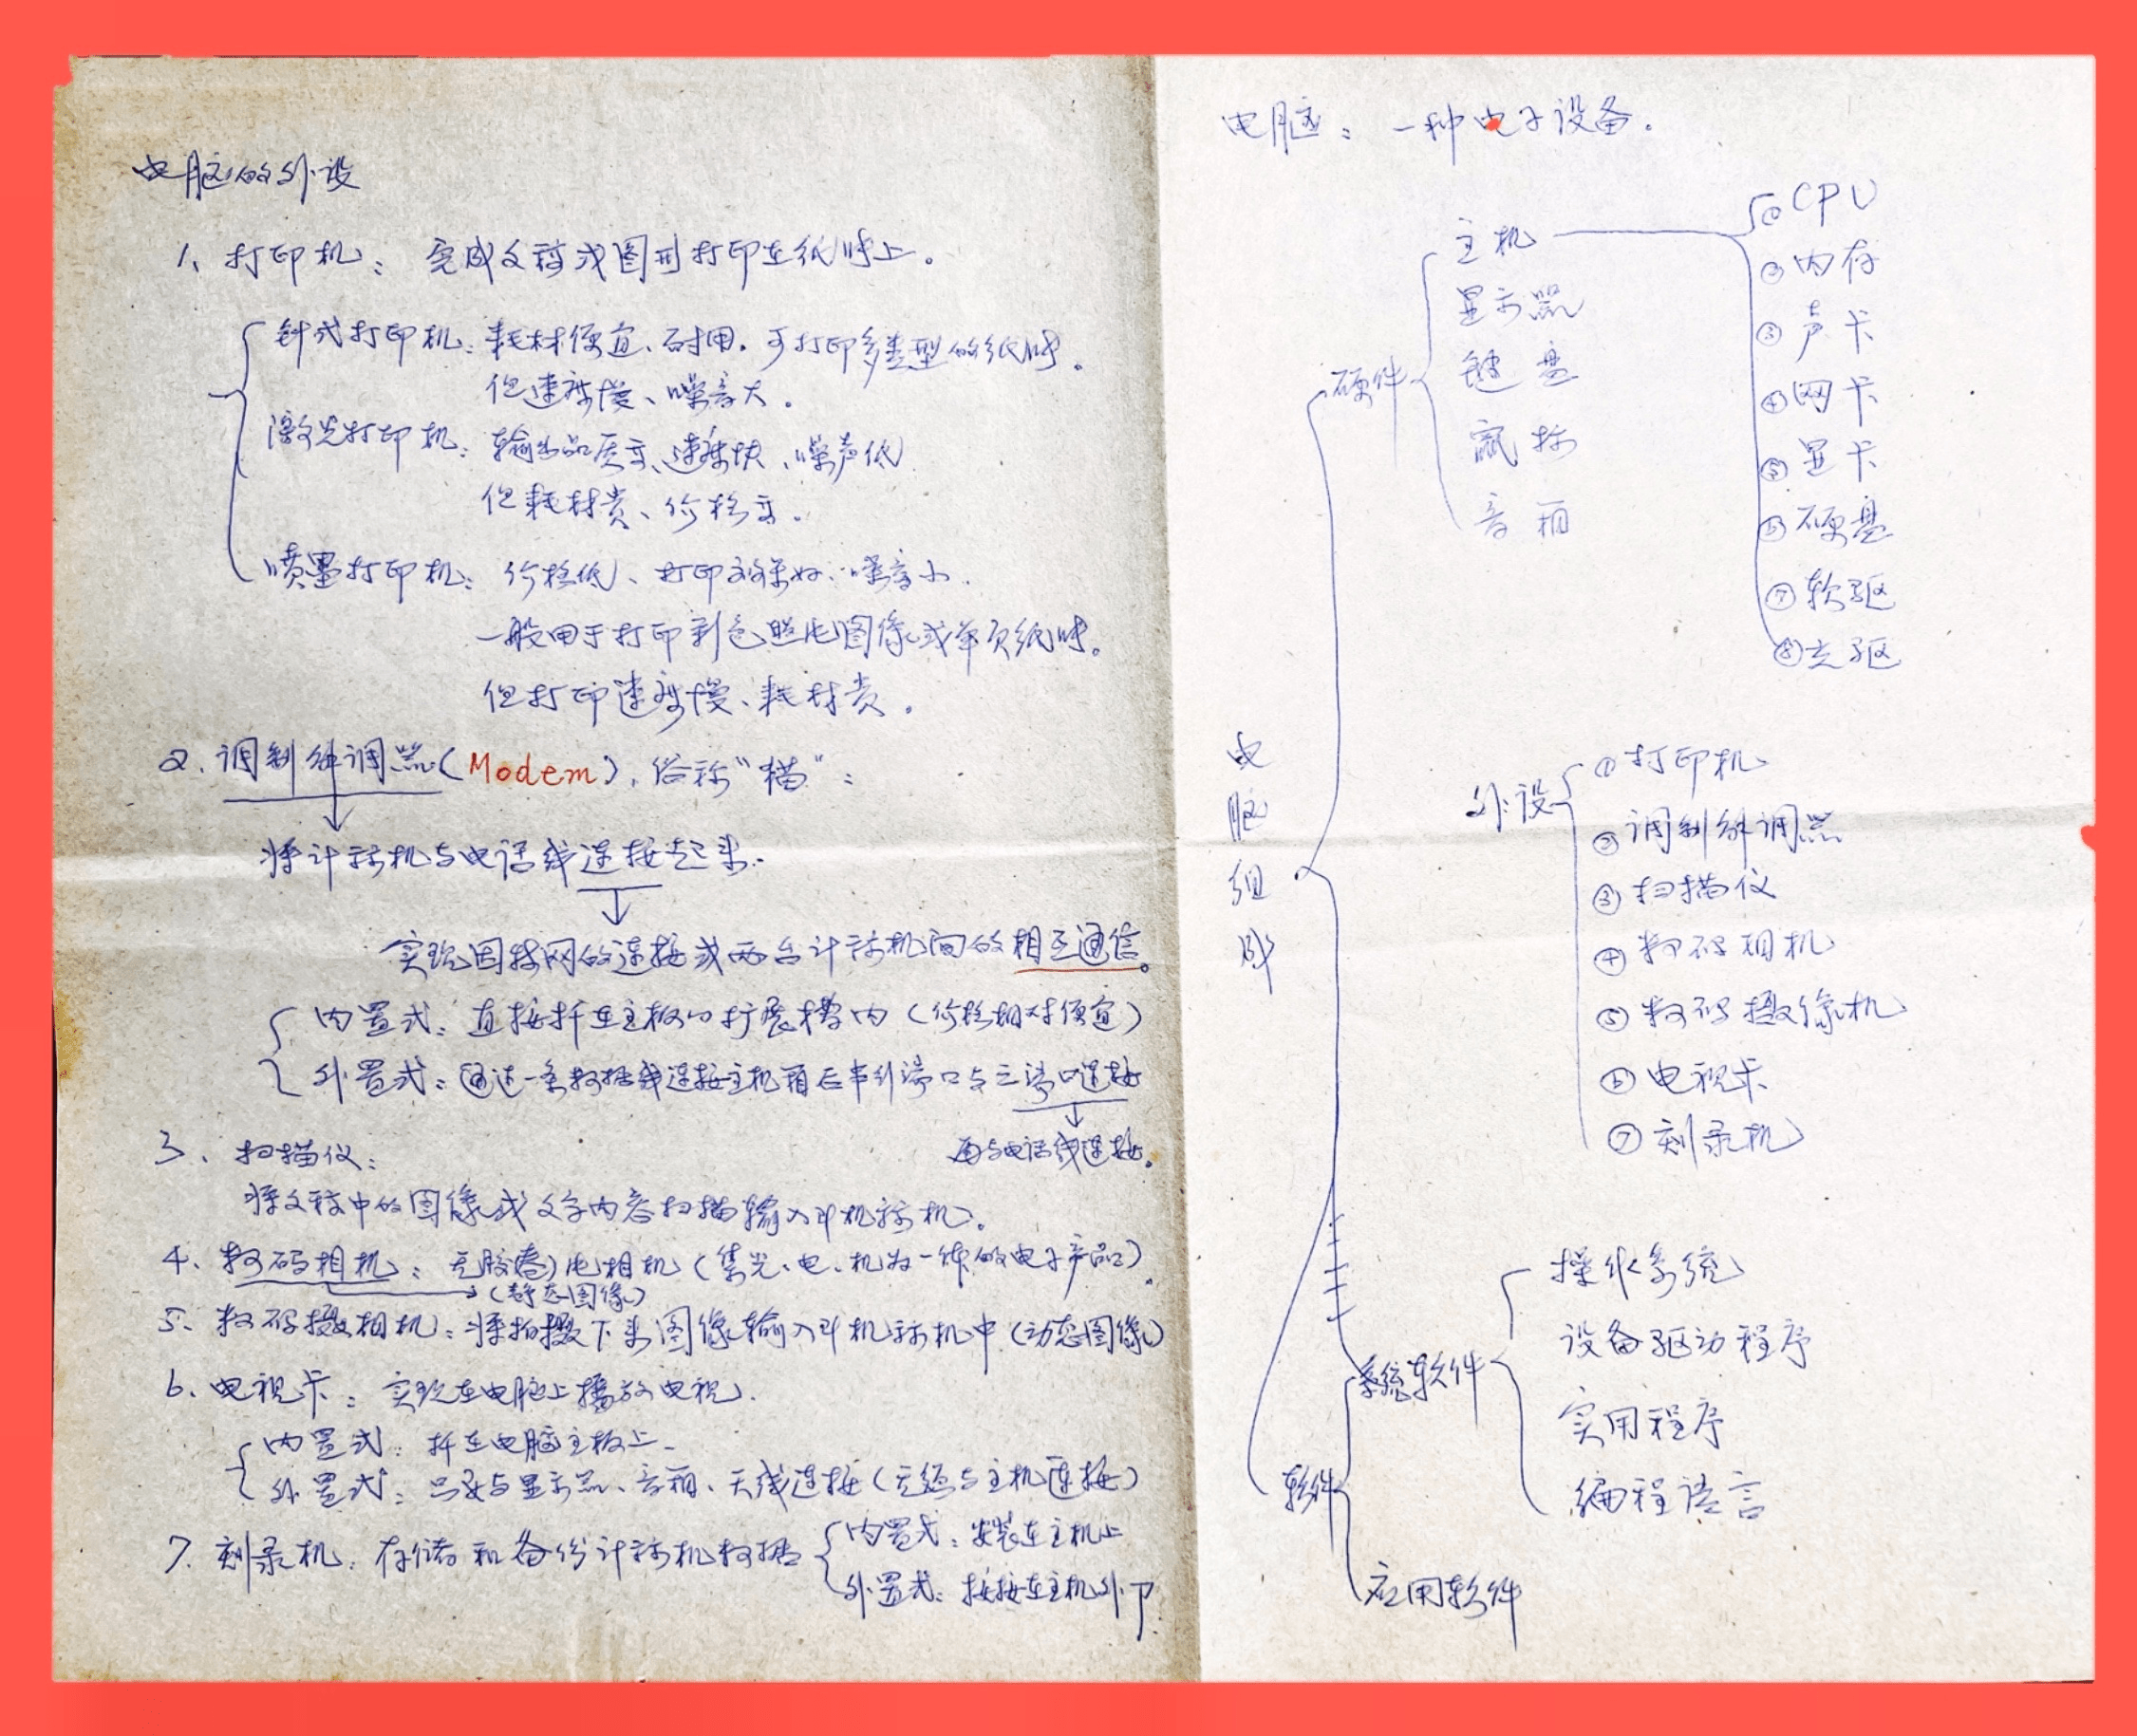 电脑的外设
1、打印机：完成文稿或图形打印在纸张上。
针式打印机：耗材便宜、耐用。可打印多类型的纸张。
但速度慢、噪音大。
激光打印机：输出品质高、速度快、噪声低
但耗材贵、价格高。
喷墨打印机：价格低、打印效果好、噪音小.
一般用于打印彩色照片图像或单页纸张。
但打印速度慢、耗材贵。
2.调制解调器(Modem),俗称“猫”：
将计算机与电话线连接起来.
实现因特网的连接或两台计算机间的相互通信。
内置式：直接插在主板的扩展槽内（价格相对便宜）
外置式：通过一条数据线连接主机箱后串行端口与之端口连接
再与电话线连接。
3、扫描仪：
将文稿中的图像或文字内容扫描输入计机算机。
4、数码相机：无胶卷 相机（集光、电、机为一体的电子产品）.
（静态图像）
5、数码摄相机：将拍摄下来图像输入计机算机中（动态图像）
6、电视卡：实现在电脑上播放电视.
内置式：插在电脑主板上.
外置式：只要与显示器、音箱、天线连接（无须与主机连接）
7、刻录机：存储和备份计算机数据
内置式：安装在主机上
外置式：接在主机外
电脑：一种电子设备.
电脑组成
硬件
主机
显示器
键盘
鼠标
音箱
①CPU
②内存
③声卡
④网卡
⑤显卡
⑥硬盘
⑦软驱
⑧光驱
外设
①打印机
②调制解调器
③扫描仪
④数码相机
⑤数码摄像机
⑥电视卡
⑦刻录机
软件
系统软件
操作系统
设备驱动程序
实用程序
编程语言
应用软件